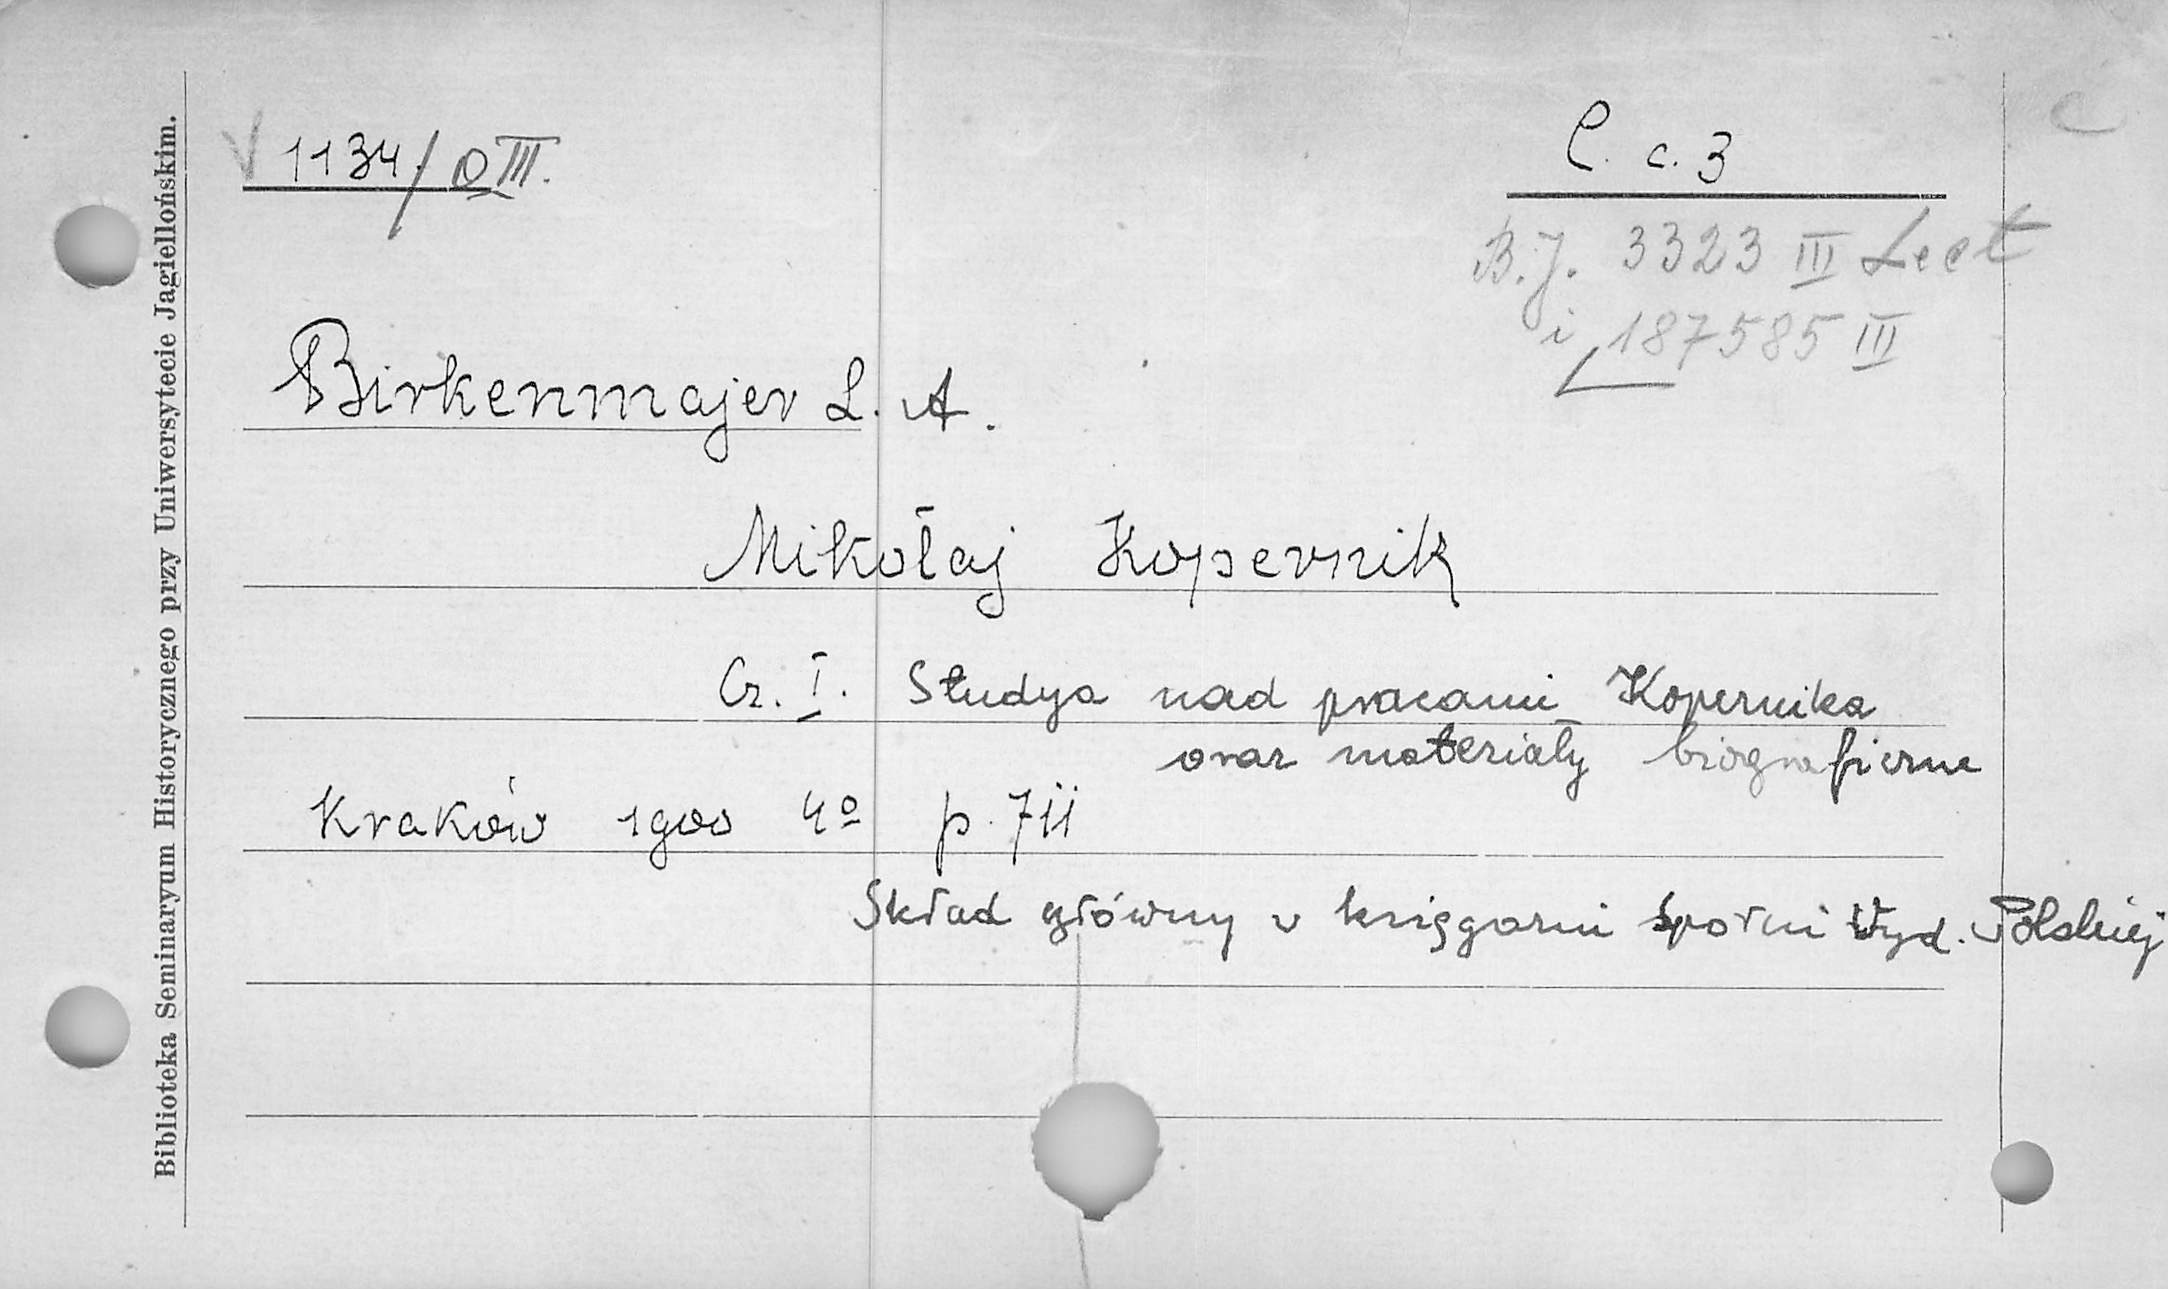 V 1134/O III.
C. c. 3
C
B.J. 3323 III Lect
i 187585 III
Birkenmajer L. A.
Mikołaj Kopernik
Cz. I. Studya nad pracami Kopernika
oraz materiały biograficzne
Kraków 1900 4º p. 711
Skład główny w księgarni Społki Wyd. Polskiej
Biblioteka Seminaryum Historycznego przy Uniwersytecie Jagiellońskim.